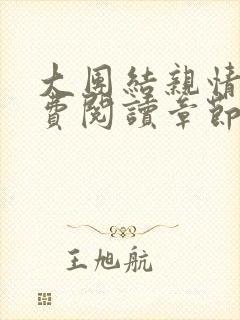 大団結親情
費閱讀章節
王旭航